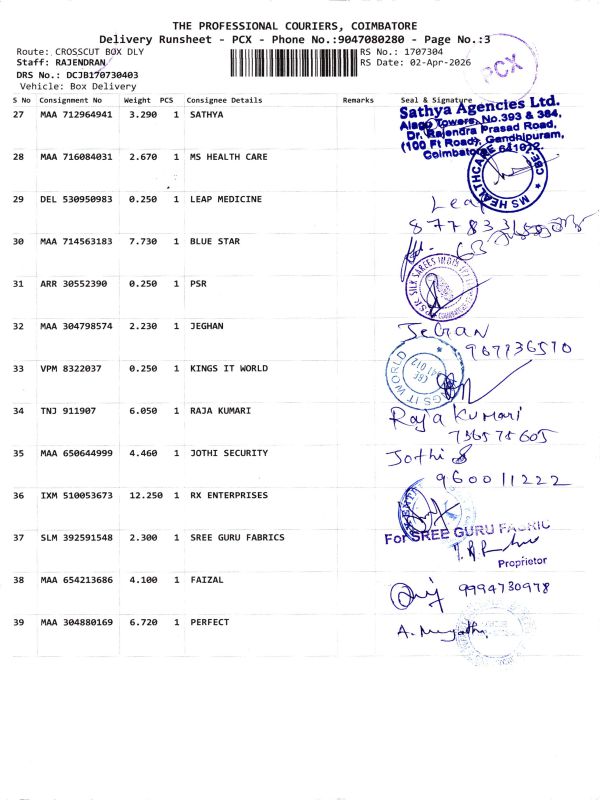 THE PROFESSIONAL COURIERS, COIMBATORE
Delivery Runsheet - PCX - Phone No.:9047080280 - Page No.:3
Route: CROSSCUT BOX DLY RS No.: 1707304
Staff: RAJENDRAN RS Date: 02-Apr-2026
PCX
DRS No.: DCJB170730403
Vehicle: Box Delivery
S No Consignment No Weight PCS Consignee Details Remarks Seal & Signature
27 MAA 712964941 3.290 1 SATHYA
Sathya Agencies Ltd.
Alagu Towers, No.393 & 384,
Dr. Rajendra Prasad Road,
(100 Ft Road), Gandhipuram,
Coimbatore 641012.
28 MAA 716084031 2.670 1 MS HEALTH CARE
MS HEALTHCARE CBE
29 DEL 530950983 0.250 1 LEAP MEDICINE
Leap
30 MAA 714563183 7.730 1 BLUE STAR
31 ARR 30552390 0.250 1 PSR
SILK SAREES
32 MAA 304798574 2.230 1 JEGHAN
Jegan
967136570
33 VPM 8322037 0.250 1 KINGS IT WORLD
KINGS IT WORLD CBE 641 012
34 TNJ 911907 6.050 1 RAJA KUMARI
Raja Kumari
736575605
35 MAA 650644999 4.460 1 JOTHI SECURITY
Jothi
960011222
36 IXM 510053673 12.250 1 RX ENTERPRISES
37 SLM 392591548 2.300 1 SREE GURU FABRICS
For SREE GURU FABRIC
Proprietor
38 MAA 654213686 4.100 1 FAIZAL
9994730978
39 MAA 304880169 6.720 1 PERFECT